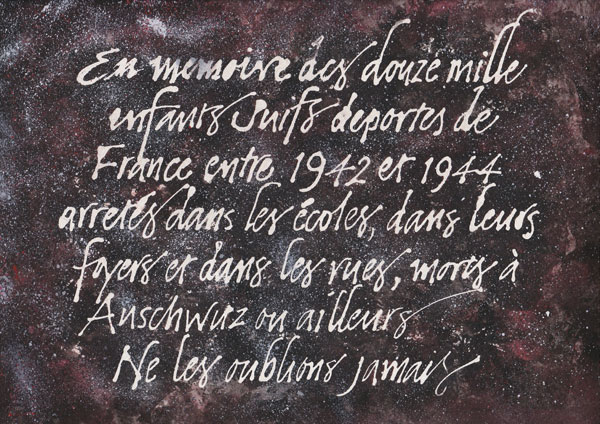 En memoire des douze mille
enfants Juifs deportes de
France entre 1942 et 1944
arretés dans les écoles, dans leurs
foyers et dans les rues, morts à
Auschwitz ou ailleurs
Ne les oublions jamais